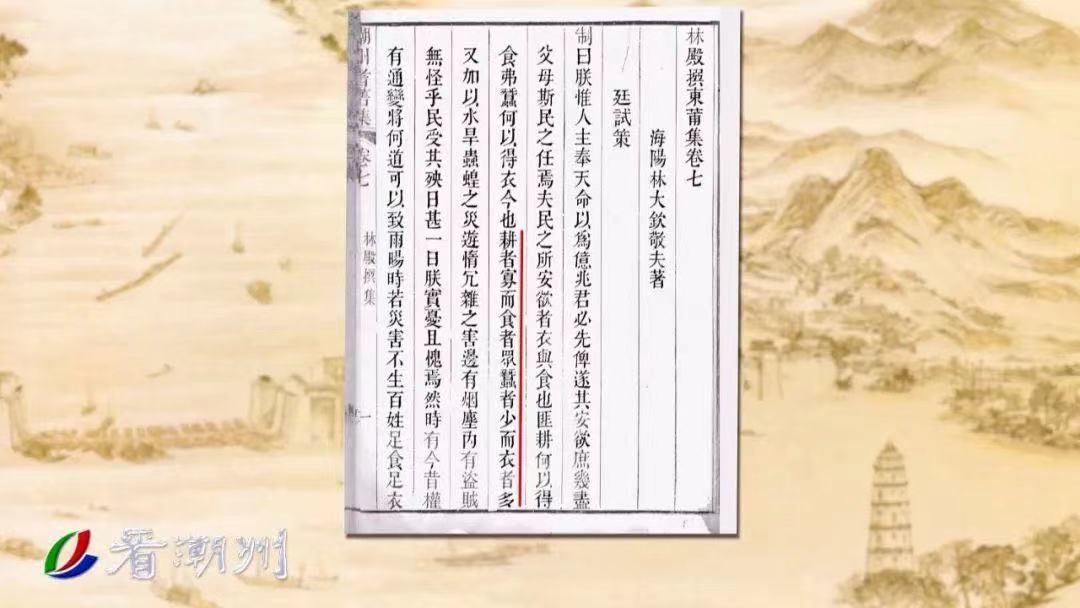 林殿撰東莆集卷七
海陽林大欽敬夫著
廷試策
制曰朕惟人主奉天命以爲億兆君必先俾遂其安欲庶幾盡
父母斯民之任焉夫民之所安欲者衣與食也匪耕何以得
食弗蠶何以得衣今也耕者寡而食者眾蠶者少而衣者多
又加以水旱蟲蝗之災遊惰冗雜之害邊有烟塵內有盜賊
無怪乎民受其殃日甚一日朕實憂且愧焉然時有今昔權
有通變將何道可以致雨暘時若災害不生百姓足食足衣
卷七
林殿撰集
一
看潮州